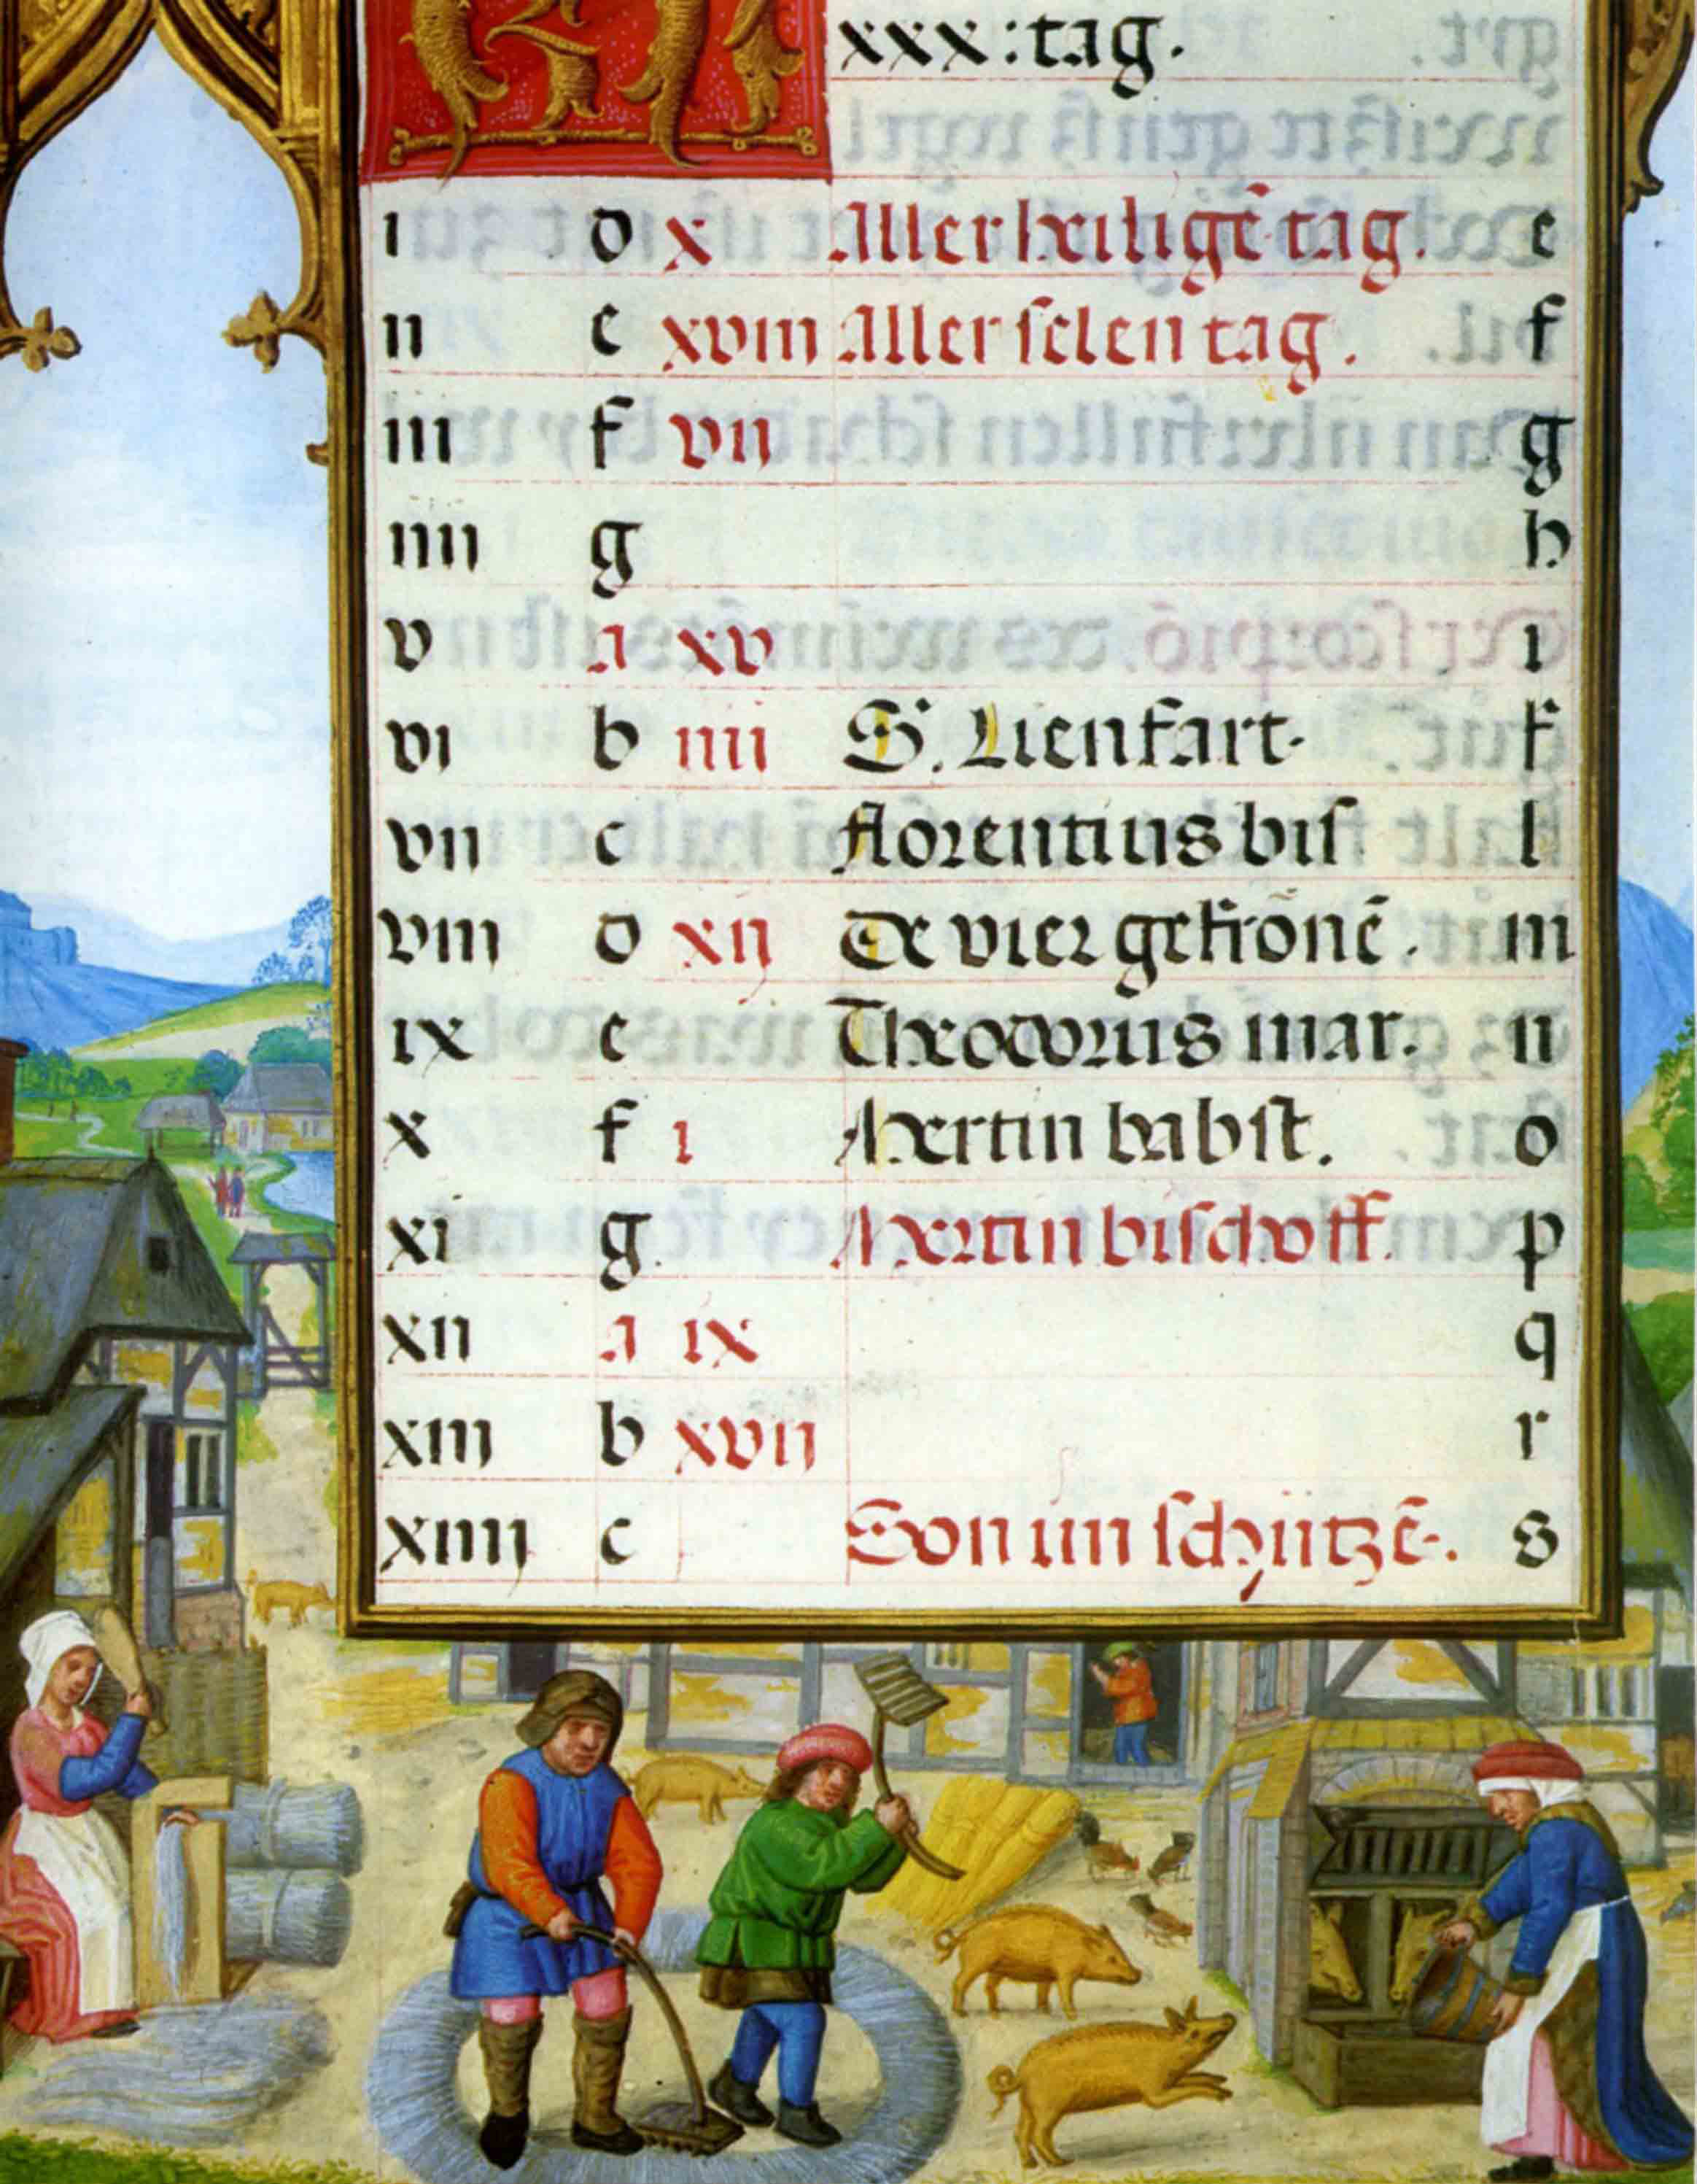 xxx: tag.
i d x Aller heiligē tag. e
ii e xviii Aller selen tag. f
iii f vii g
iiii g h
v a xv i
vi b iiii S. Lienhart. k
vii c florentius bis l
viii d xij De vier gekrönē. m
ix e Theodorus mar. n
x f i Mertin babst. o
xi g. Mertin bischoff. p
xii a ix q
xiij b xvii r
xiiij c Son im schützē. s